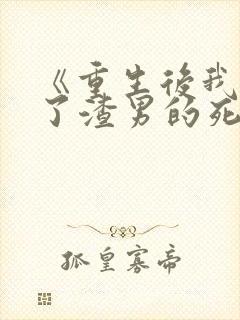 《重生後我
了渣男的死
孤皇寡帝